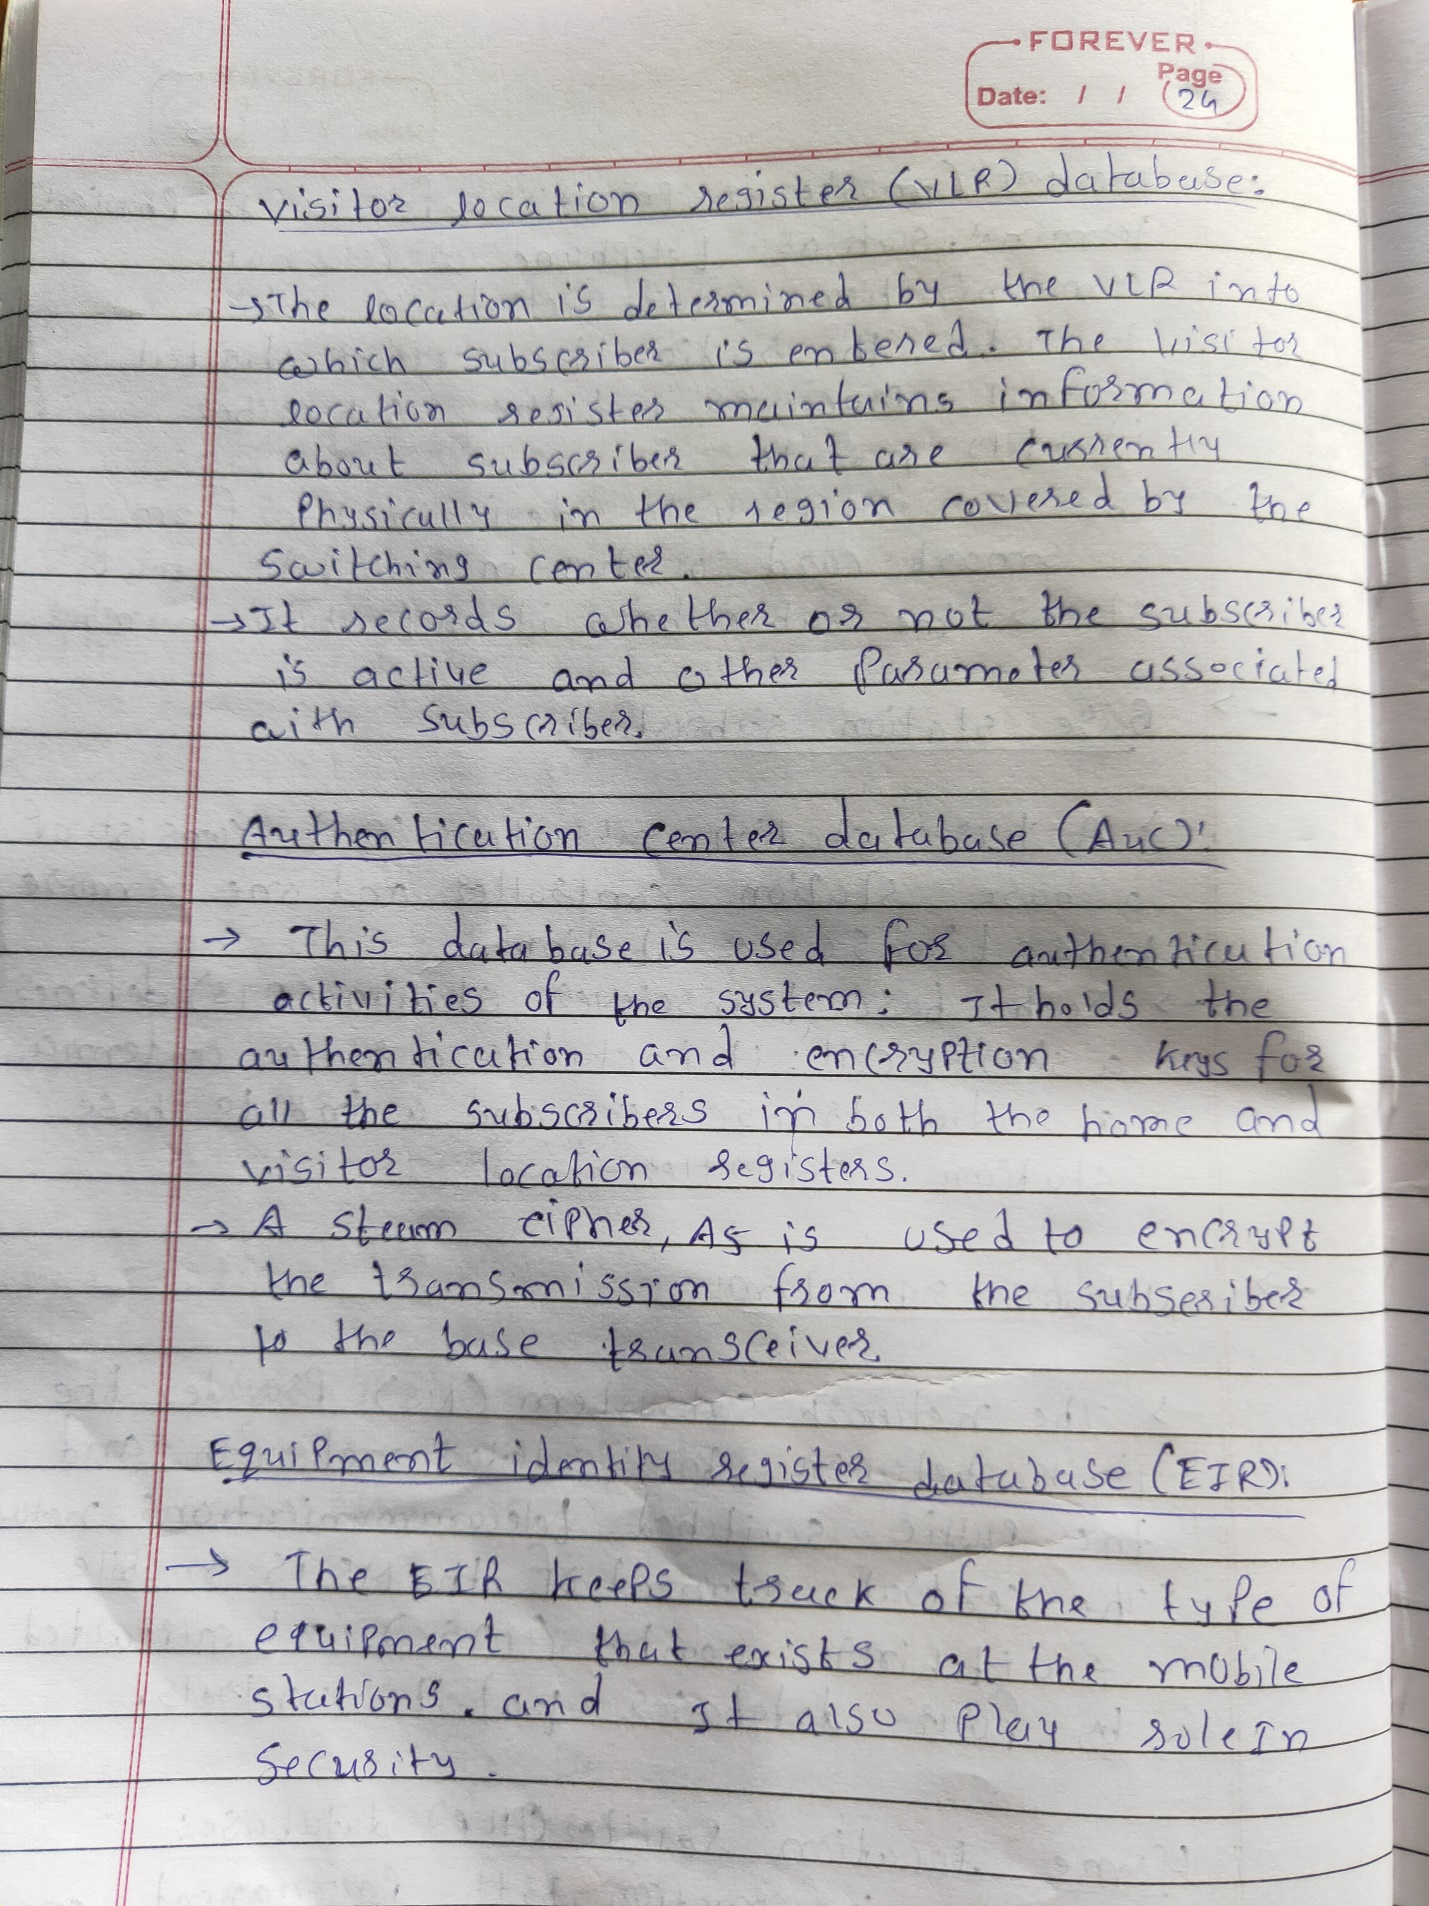 FOREVER
Page
Date: / / 24
Visitor location register (VLR) database:
→The location is determined by the VLR into
which subscriber is entered. The Visitor
location register maintains information
about subscriber that are currently
Physically in the region covered by the
Switching center.
→It records whether or not the subscriber
is active and other Parameter associated
with subscriber.
Authentication Center database (AuC):
→ This database is used for authentication
activities of the system: It holds the
authentication and encryption keys for
all the subscribers in both the home and
visitor location registers.
→ A steam cipher, A5 is used to encrypt
the transmission from the subscriber
to the base transceiver.
Equipment identity register database (EIR):
→ The EIR keeps track of the type of
equipment that exists at the mobile
stations. and It also Play role In
Security.